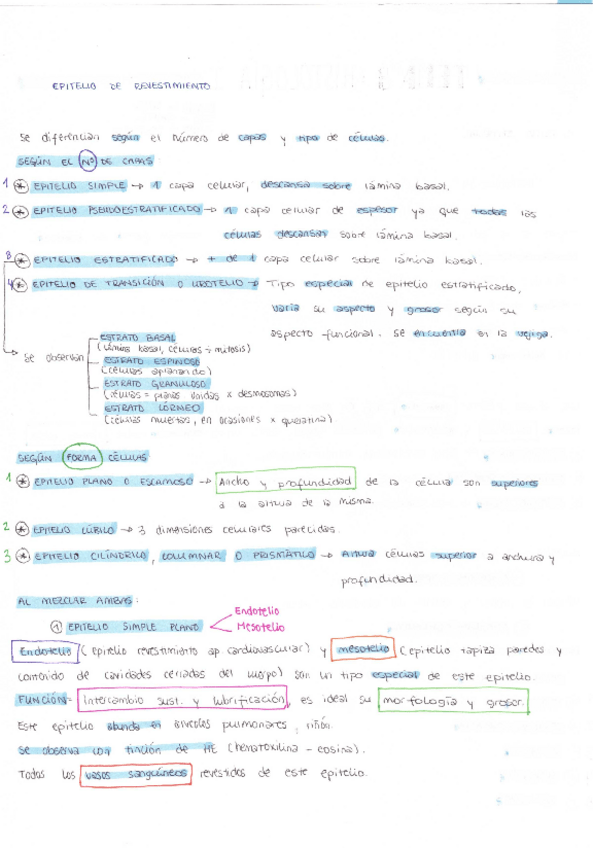 EPITELIO DE REVESTIMIENTO
Se diferencian según el número de capas y tipo de células.
SEGÚN EL Nº DE CAPAS
1 * EPITELIO SIMPLE → 1 capa celular, descansa sobre lámina basal.
2 * EPITELIO PSEUDOESTRATIFICADO → 1 capa celular de espesor ya que todas las
células descansan sobre lámina basal.
3 * EPITELIO ESTRATIFICADO → + de 1 capa celular sobre lámina basal.
4 * EPITELIO DE TRANSICIÓN O UROTELIO → Tipo especial de epitelio estratificado,
varía su aspecto y grosor según su
aspecto funcional. Se encuentra en la vejiga.
Se observan
ESTRATO BASAL
(lámina basal, células ÷ mitosis)
ESTRATO ESPINOSO
(células aplanando)
ESTRATO GRANULOSO
(células = planas unidas x desmosomas)
ESTRATO CÓRNEO
(células muertas, en ocasiones x queratina)
SEGÚN FORMA CÉLULAS
1 * EPITELIO PLANO O ESCAMOSO → Ancho y profundidad de la célula son superiores
a la altura de la misma.
2 * EPITELIO CÚBICO → 3 dimensiones celulares parecidas.
3 * EPITELIO CILÍNDRICO, COLUMNAR O PRISMÁTICO → Altura células superior a anchura y
profundidad.
AL MEZCLAR AMBAS:
1 EPITELIO SIMPLE PLANO
Endotelio
Mesotelio
Endotelio (epitelio revestimiento ap cardiovascular) y mesotelio (epitelio tapiza paredes y
contenido de cavidades cerradas del cuerpo) son un tipo especial de este epitelio.
FUNCIÓN: Intercambio sust. y lubrificación, es ideal su morfología y grosor.
Este epitelio abunda en alveolos pulmonares, riñón.
Se observa con tinción de HE (hematoxilina - eosina).
Todos los vasos sanguíneos revestidos de este epitelio.